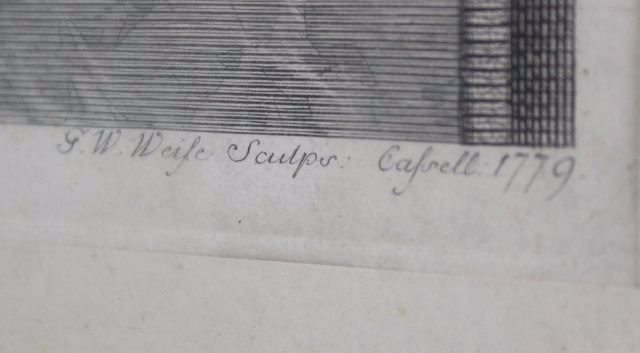 G. W. Weiſe Sculps: Caſsell. 1779.